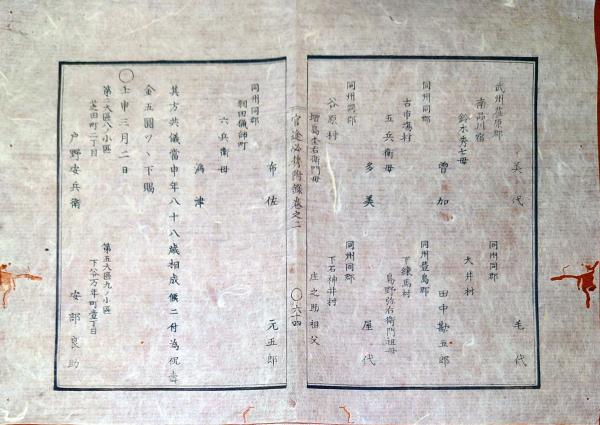 武州荏原郡
南品川宿
鈴木秀七母
美代
同州同郡
大井村
毛代
同州同郡
古市場村
五兵衛母
曽加
同州豊島郡
下練馬村
田中勘五郎
島野弥右衛門祖母
多美
屋代
同州同郡
谷原村
増島重右衛門母
同州同郡
下石神井村
庄之助祖父
官途必携附録巻之二
〇六十四
布佐
元五郎
同州同郡
羽田猟師町
六兵衛母
満津
其方共儀當申年八十八歳相成候二付為祝壽
金五圓ツヽ下賜
〇壬申三月二日
第二大區八小區
芝田町二丁目
戸野安兵衛
第五大區九ノ小區
下谷万年町壹丁目
安部良助